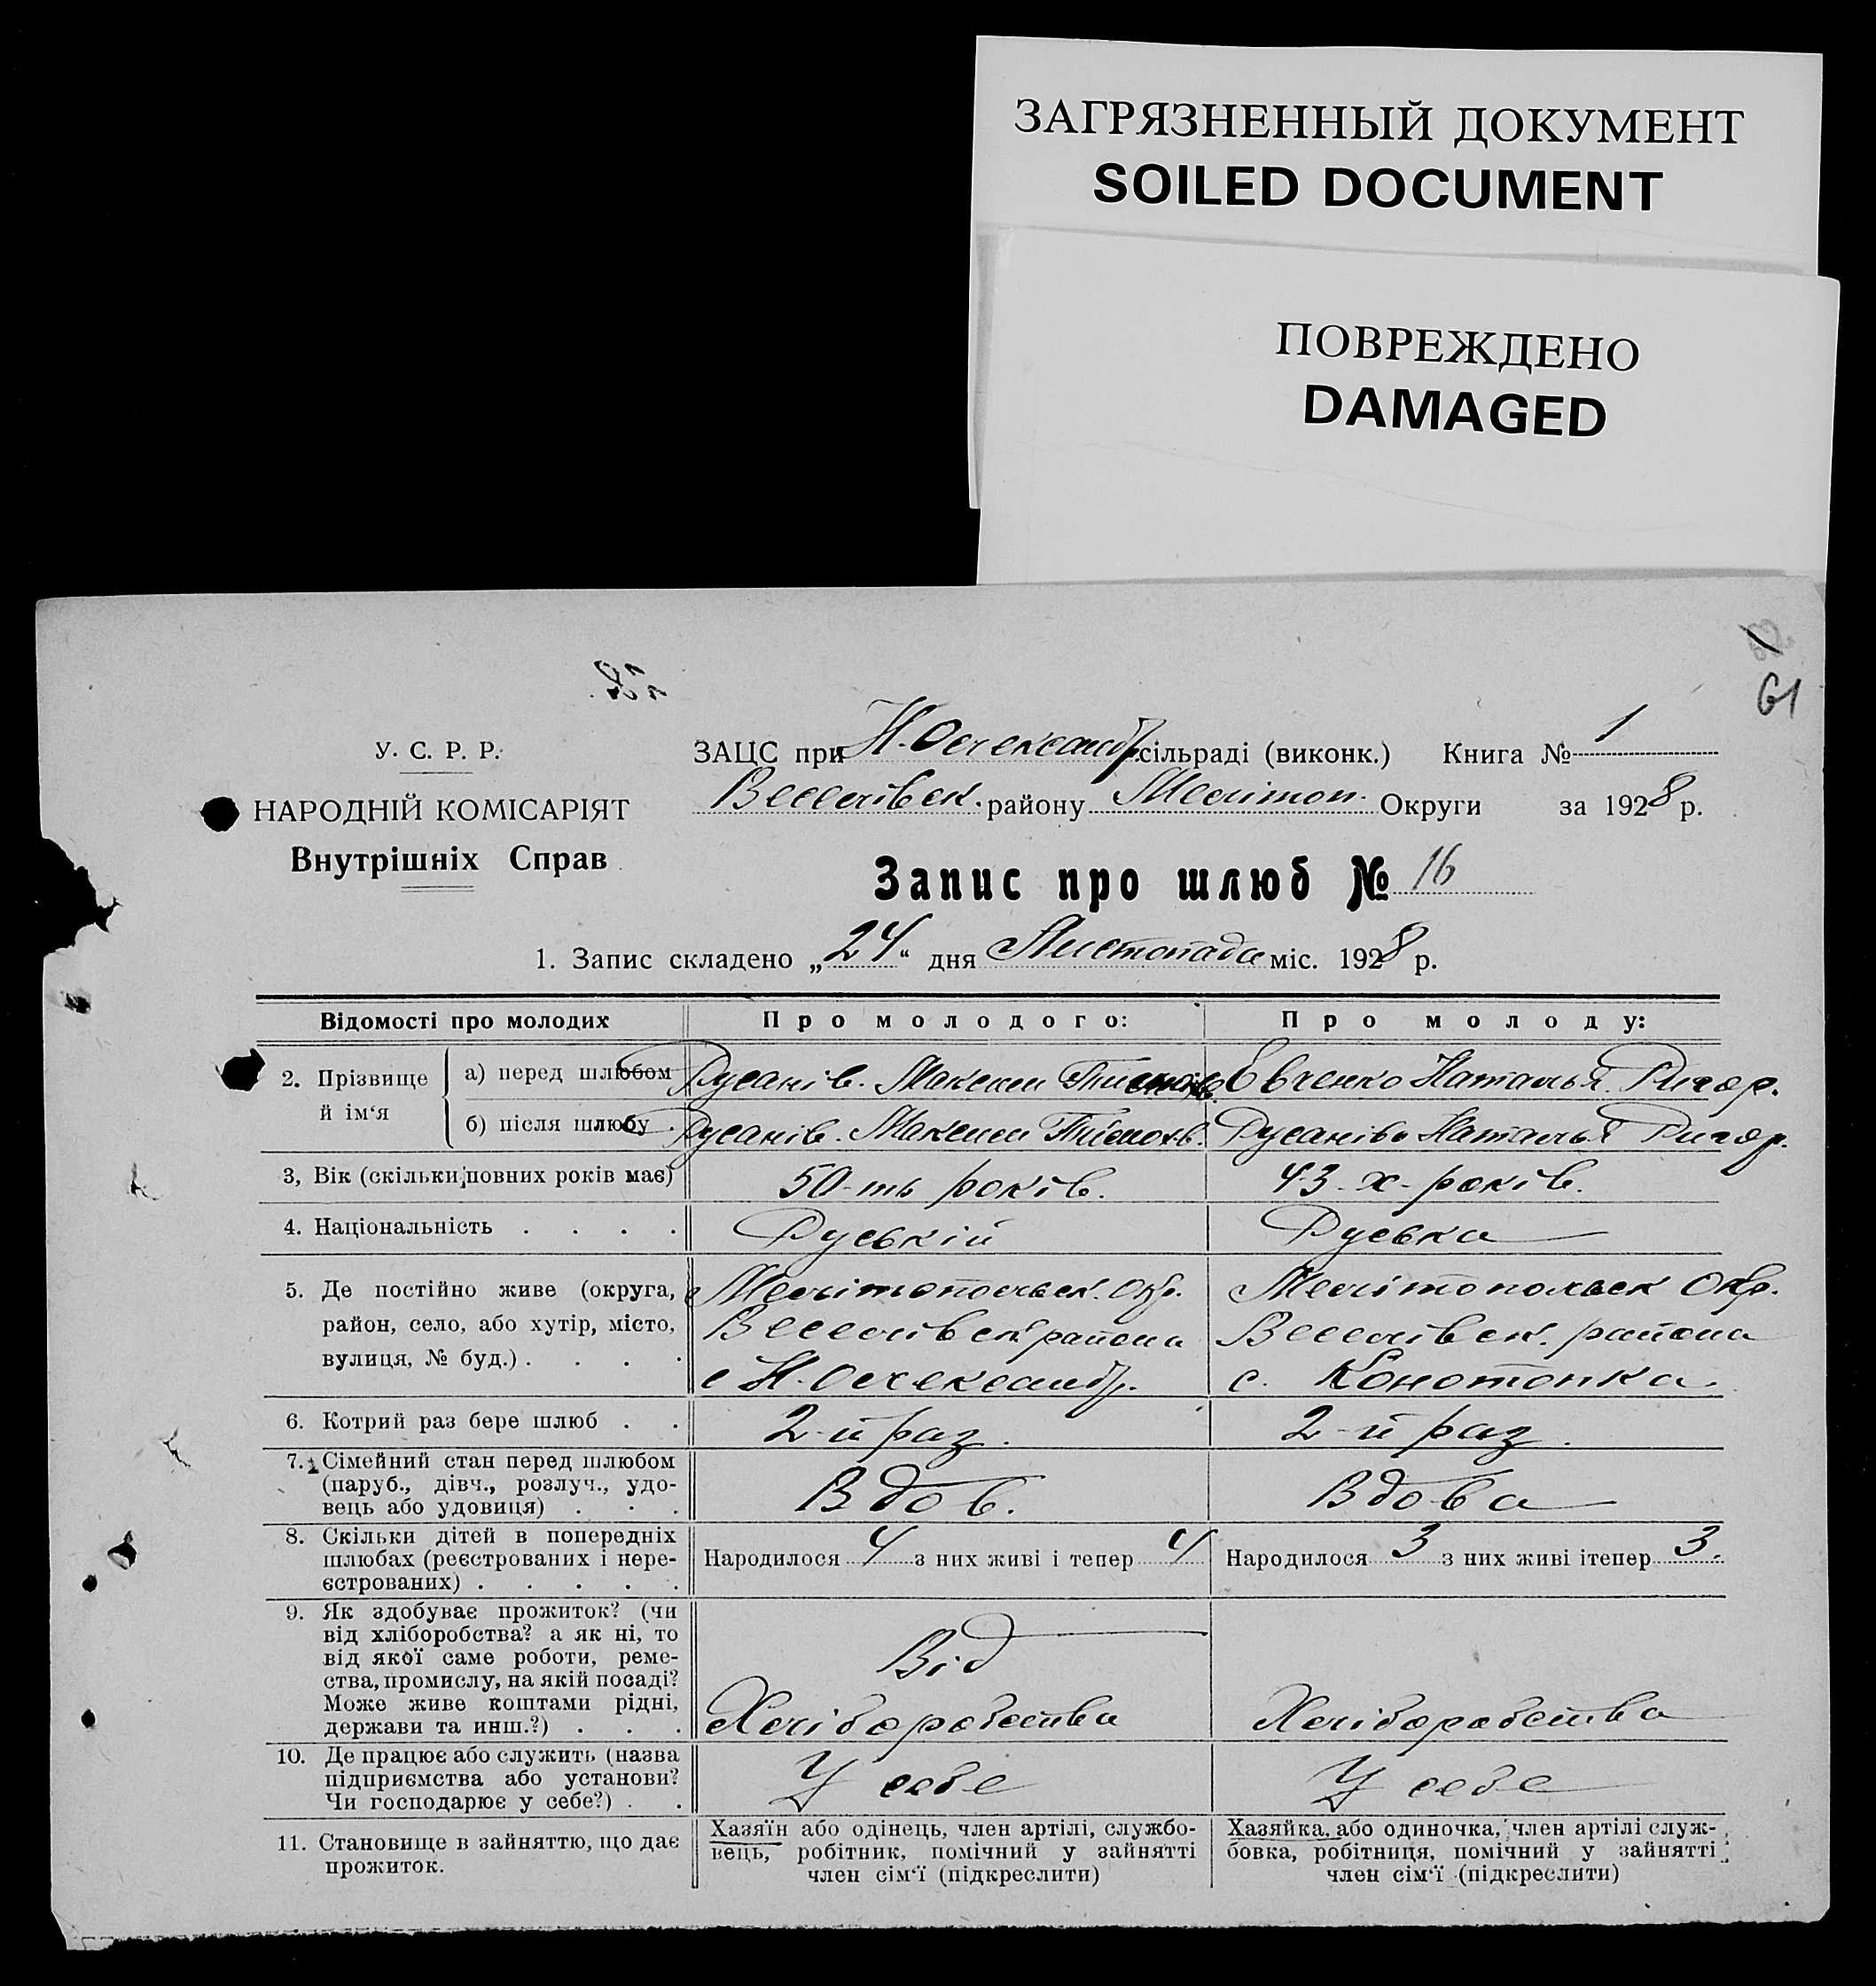 ЗАГРЯЗНЕННЫЙ ДОКУМЕНТ
SOILED DOCUMENT
ПОВРЕЖДЕНО
DAMAGED
61
У. С. Р. Р.
НАРОДНІЙ КОМІСАРІЯТ
Внутрішніх Справ
ЗАЦС при Н. Олександр. сільраді (виконк.) Книга № 1
Веселівск. району Мелітоп. Округи за 1928 р.
Запис про шлюб № 16
1. Запис складено „24“ дня Листопада міс. 1928 р.
Відомості про молодих Про молодого: Про молоду:
2. Прізвище й ім‘я
а) перед шлюбом Русанів. Максим Тимохв. Евченко Наталья Ригор.
б) після шлюбу Русанів. Максим Тимохв. Русаніва Наталья Ригор.
3, Вік (скільки повних років має) 50-ть років. 43-х-років.
4. Національність . . . . Руській Руська
5. Де постійно живе (округа, Мелітопольск. Окр. Мелітопольск Окр.
район, село, або хутір, місто, Веселівск района Веселівск. района
вулиця, № буд.) . . . . с Н. Олександр. с. Конотопка
6. Котрий раз бере шлюб . . 2-й раз. 2-й раз.
7. Сімейний стан перед шлюбом
(паруб., дівч., розлуч., удо-
вець або удовиця) . . . Вдов. Вдова
8. Скільки дітей в попередніх
шлюбах (реєстрованих і нере-
єстрованих) . . . . .
Народилося 4 з них живі і тепер 4 Народилося 3 з них живі ітепер 3.
9. Як здобуває прожиток? (чи
від хліборобства? а як ні, то
від якої саме роботи, реме-
ства, промислу, на якій посаді?
Може живе коштами рідні,
держави та инш.?) . . .
Від
Хліборобства Хліборобства
10. Де працює або служить (назва
підприємства або установи?
Чи господарює у себе?) . .
У себе У себе
11. Становище в зайняттю, що дає
прожиток.
Хазяїн або одінець, член артілі, службо-
вець, робітник, помічний у зайнятті
член сім‘ї (підкреслити)
Хазяйка, або одиночка, член артілі служ-
бовка, робітниця, помічний у зайнятті
член сім‘ї (підкреслити)